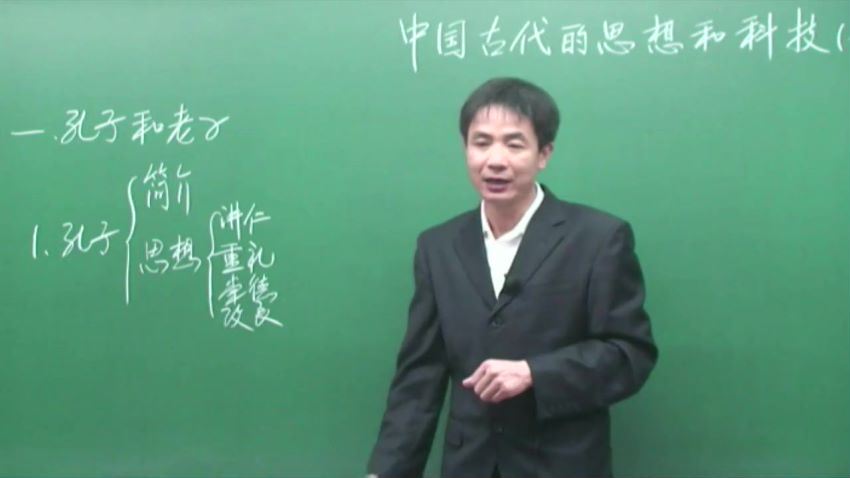 中国古代的思想和科技(
一.孔子和老子
1.孔子
简介
思想
讲仁
重礼
崇德
改良